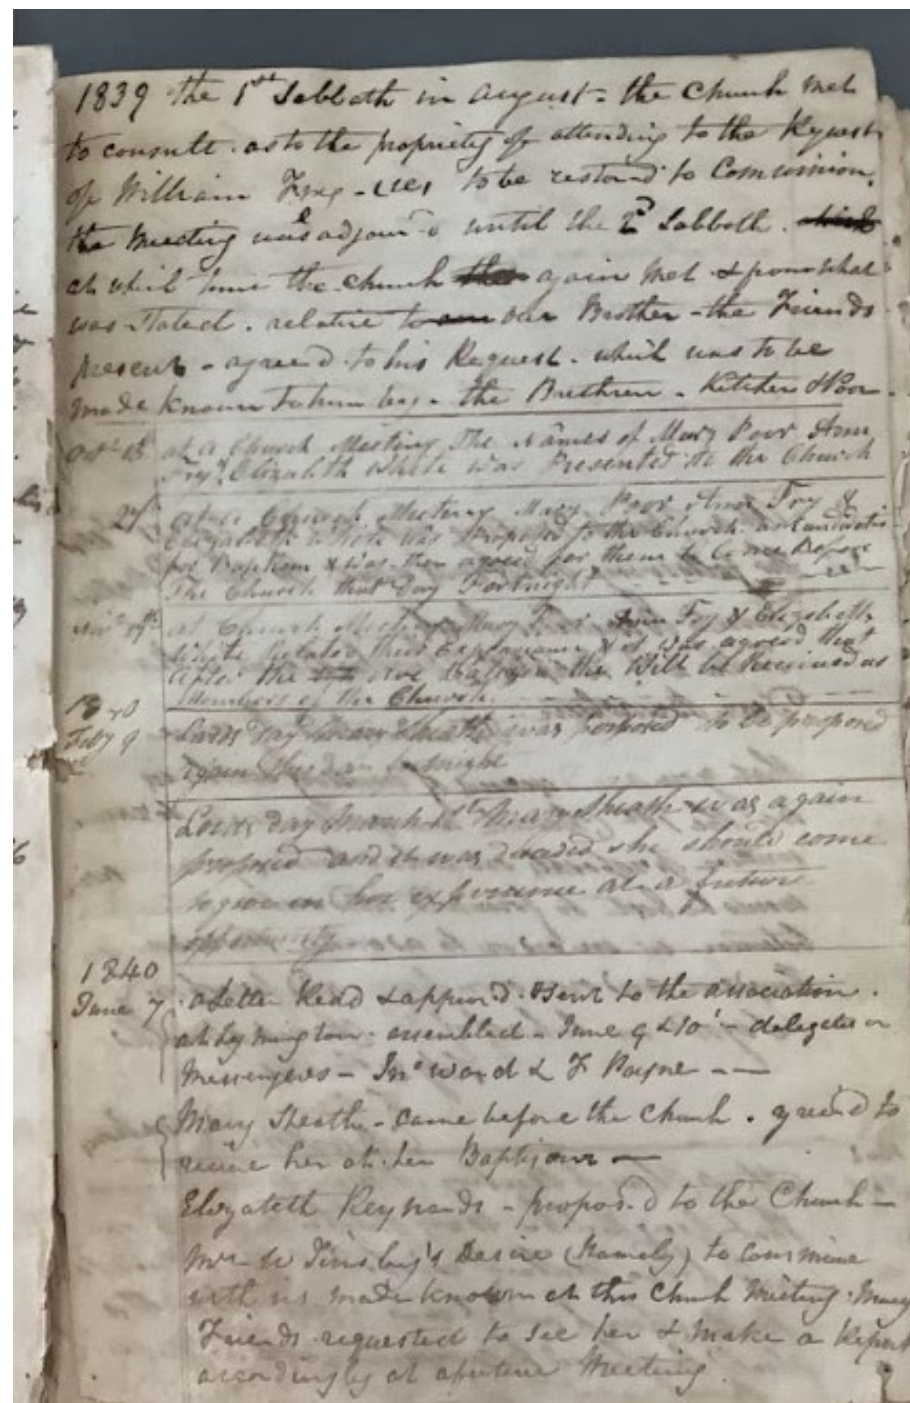 1839 the 1st Sabbath in august - the Church met
to consult. as to the propriety of attending to the Request
of William to be restord to Communion.
the Meeting was adjournd until the 2d Sabbath.
at which time the church again met & from what
was stated. relative to our Brother - the Friends
present - agreed to his Request. which was to be
made known to him by - the Brethren - Kitcher & Poor -
Octr 13 at a Church Meeting The Names of Mary Poor Ann
Fry & Elizabeth White was Presented to the Church
27 at a Church Meeting Mary Poor Ann Fry &
Elizabeth White was Proposed to the Church as Candidates
for Baptism & was then agreed for them to Come Before
The Church that Day Fortnight
at Church Meeting Mary Poor Ann Fry & Elizabeth
White Related their Experiance & it was agreed that
after the the Will be Received as
Members of the Church
1840
Feby 9 Lords Day Mary Sheath was proposed to be proposed
again this day fortnight
Lords day March 1st Mary Sheath was again
proposed and it was decided she should come
to give in her experience at a future
opportunity
1840
June 7 a Letter Read & approvd. & sent to the association.
at Lymington - assembled - June 9 & 10 - delegates or
Messengers - Jno Ward & F Payne - -
Mary Sheath - came before the Church. agreed to
receive her at her Baptism -
Elizabeth - proposd to the Church -
Mrs W Tinsley's Desire (Namely) to commune
with us made known at this Church Meeting. Many
Friends requested to see her & make a Report
accordingly at a future Meeting.